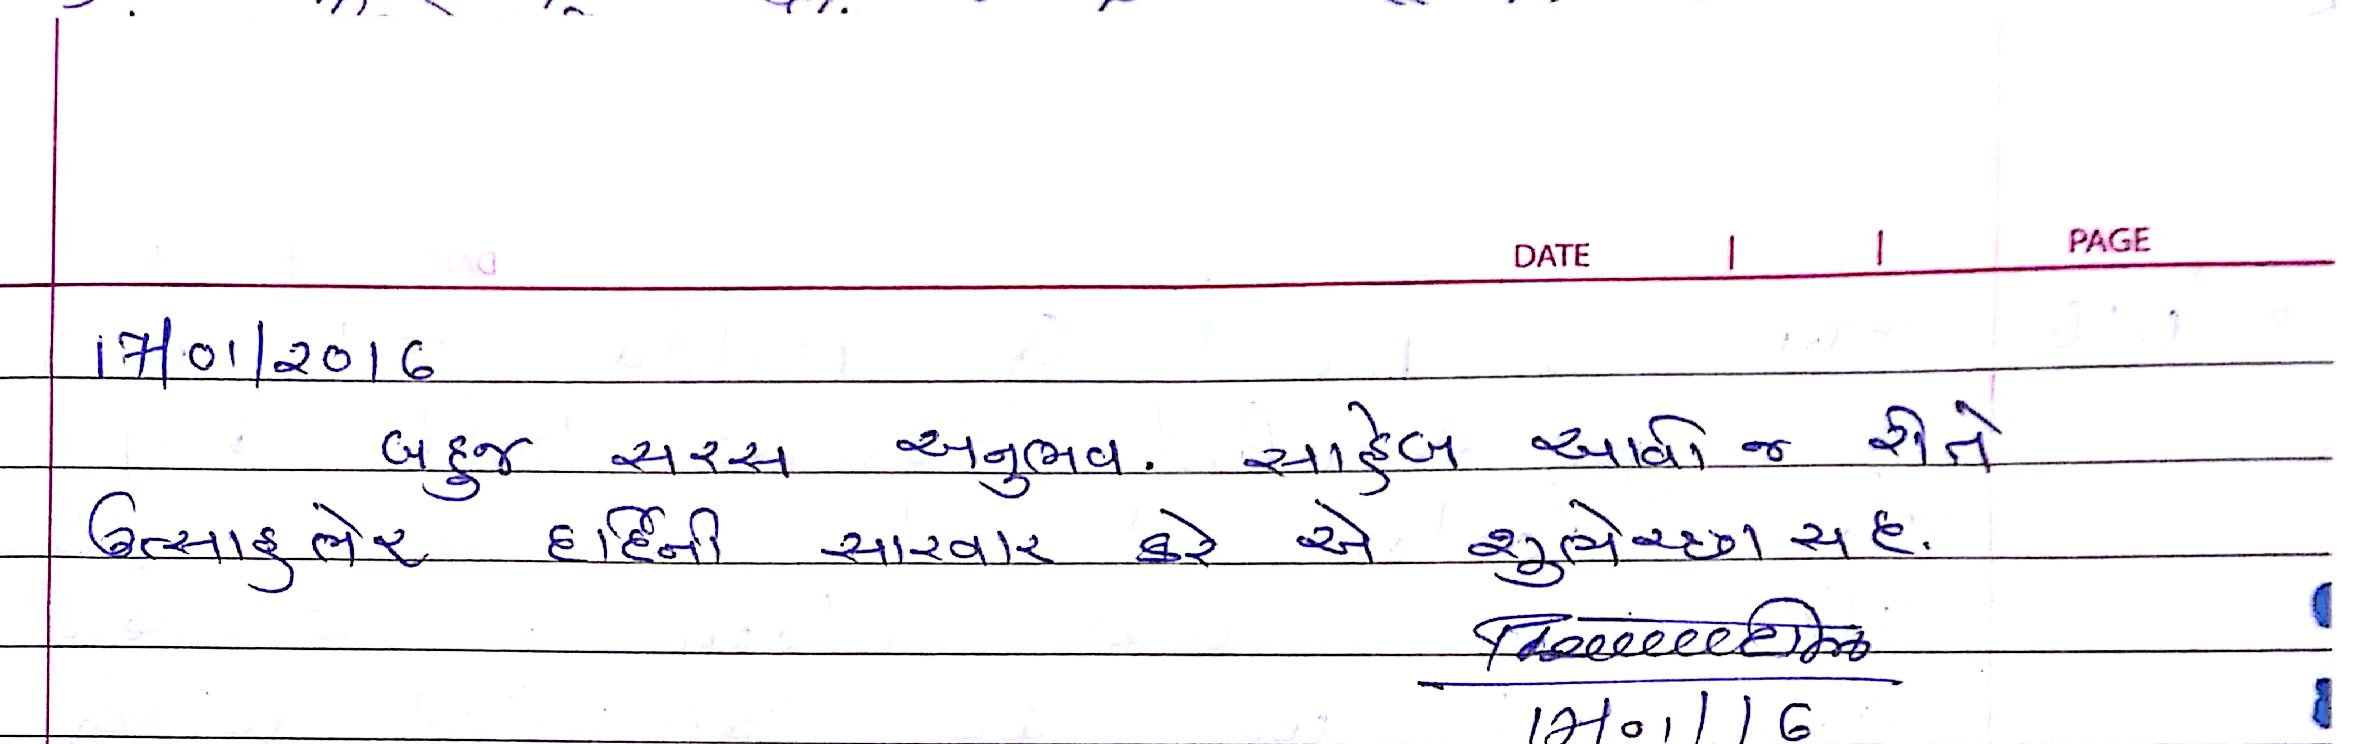 DATE | | PAGE
17/01/2016
બહુજ સરસ અનુભવ. સાહેબ આવી જ રીતે
ઉત્સાહભેર દર્દિની સારવાર કરે એ શુભેચ્છા સહ.
17/01/16